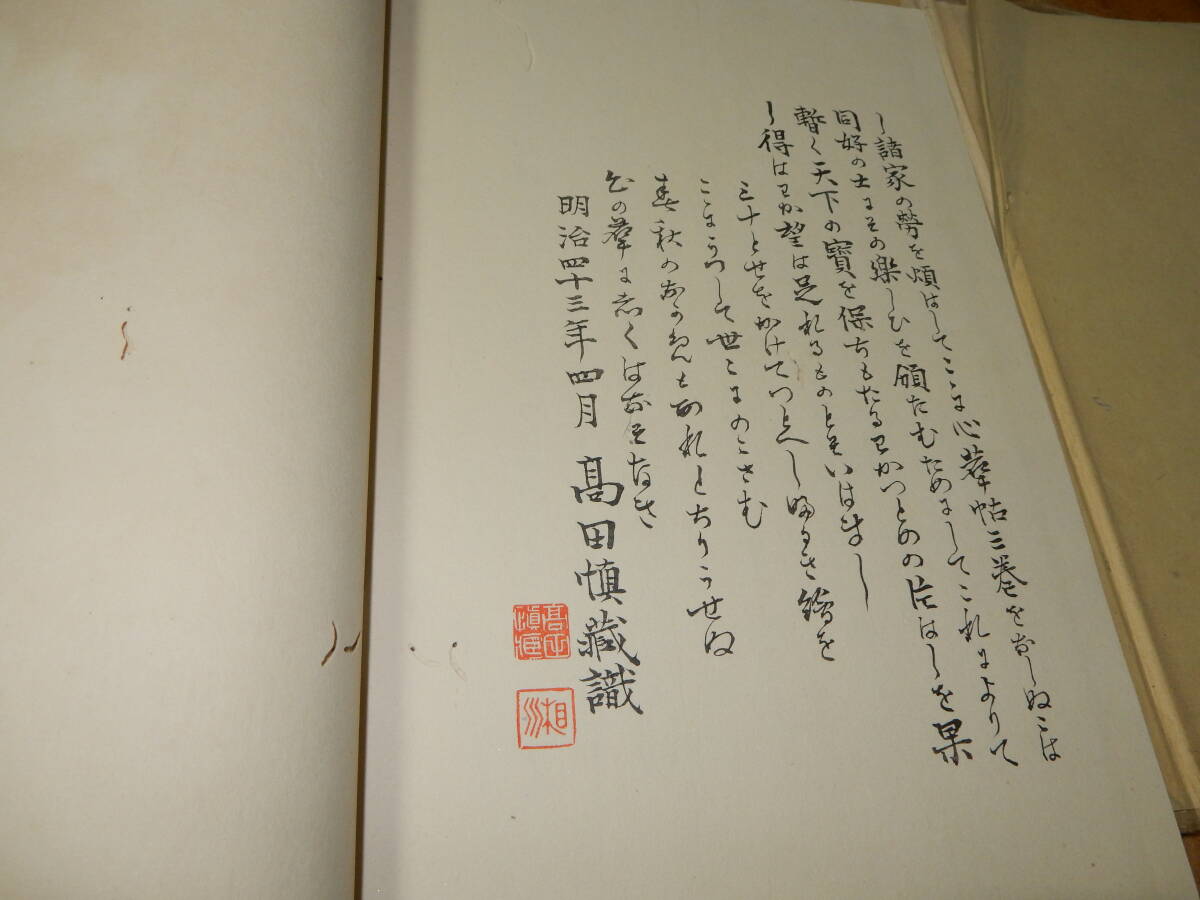 し諸家の勞を煩はしてこゝに心華帖三巻をなしぬこは
同好の士にその樂しひを頒たむためにしてこれによりて
暫く天下の寶を保ちもたるわかつとめの片はしを果
し得はわか望は足れるものとそいはまし
三十とせをかけてつとへしふるき繪を
こゝにうつして世にのこさむ
春秋のなかめもあれとちりうせぬ
心の華にしくはなそなき
明治四十三年四月 髙田慎藏識
湘